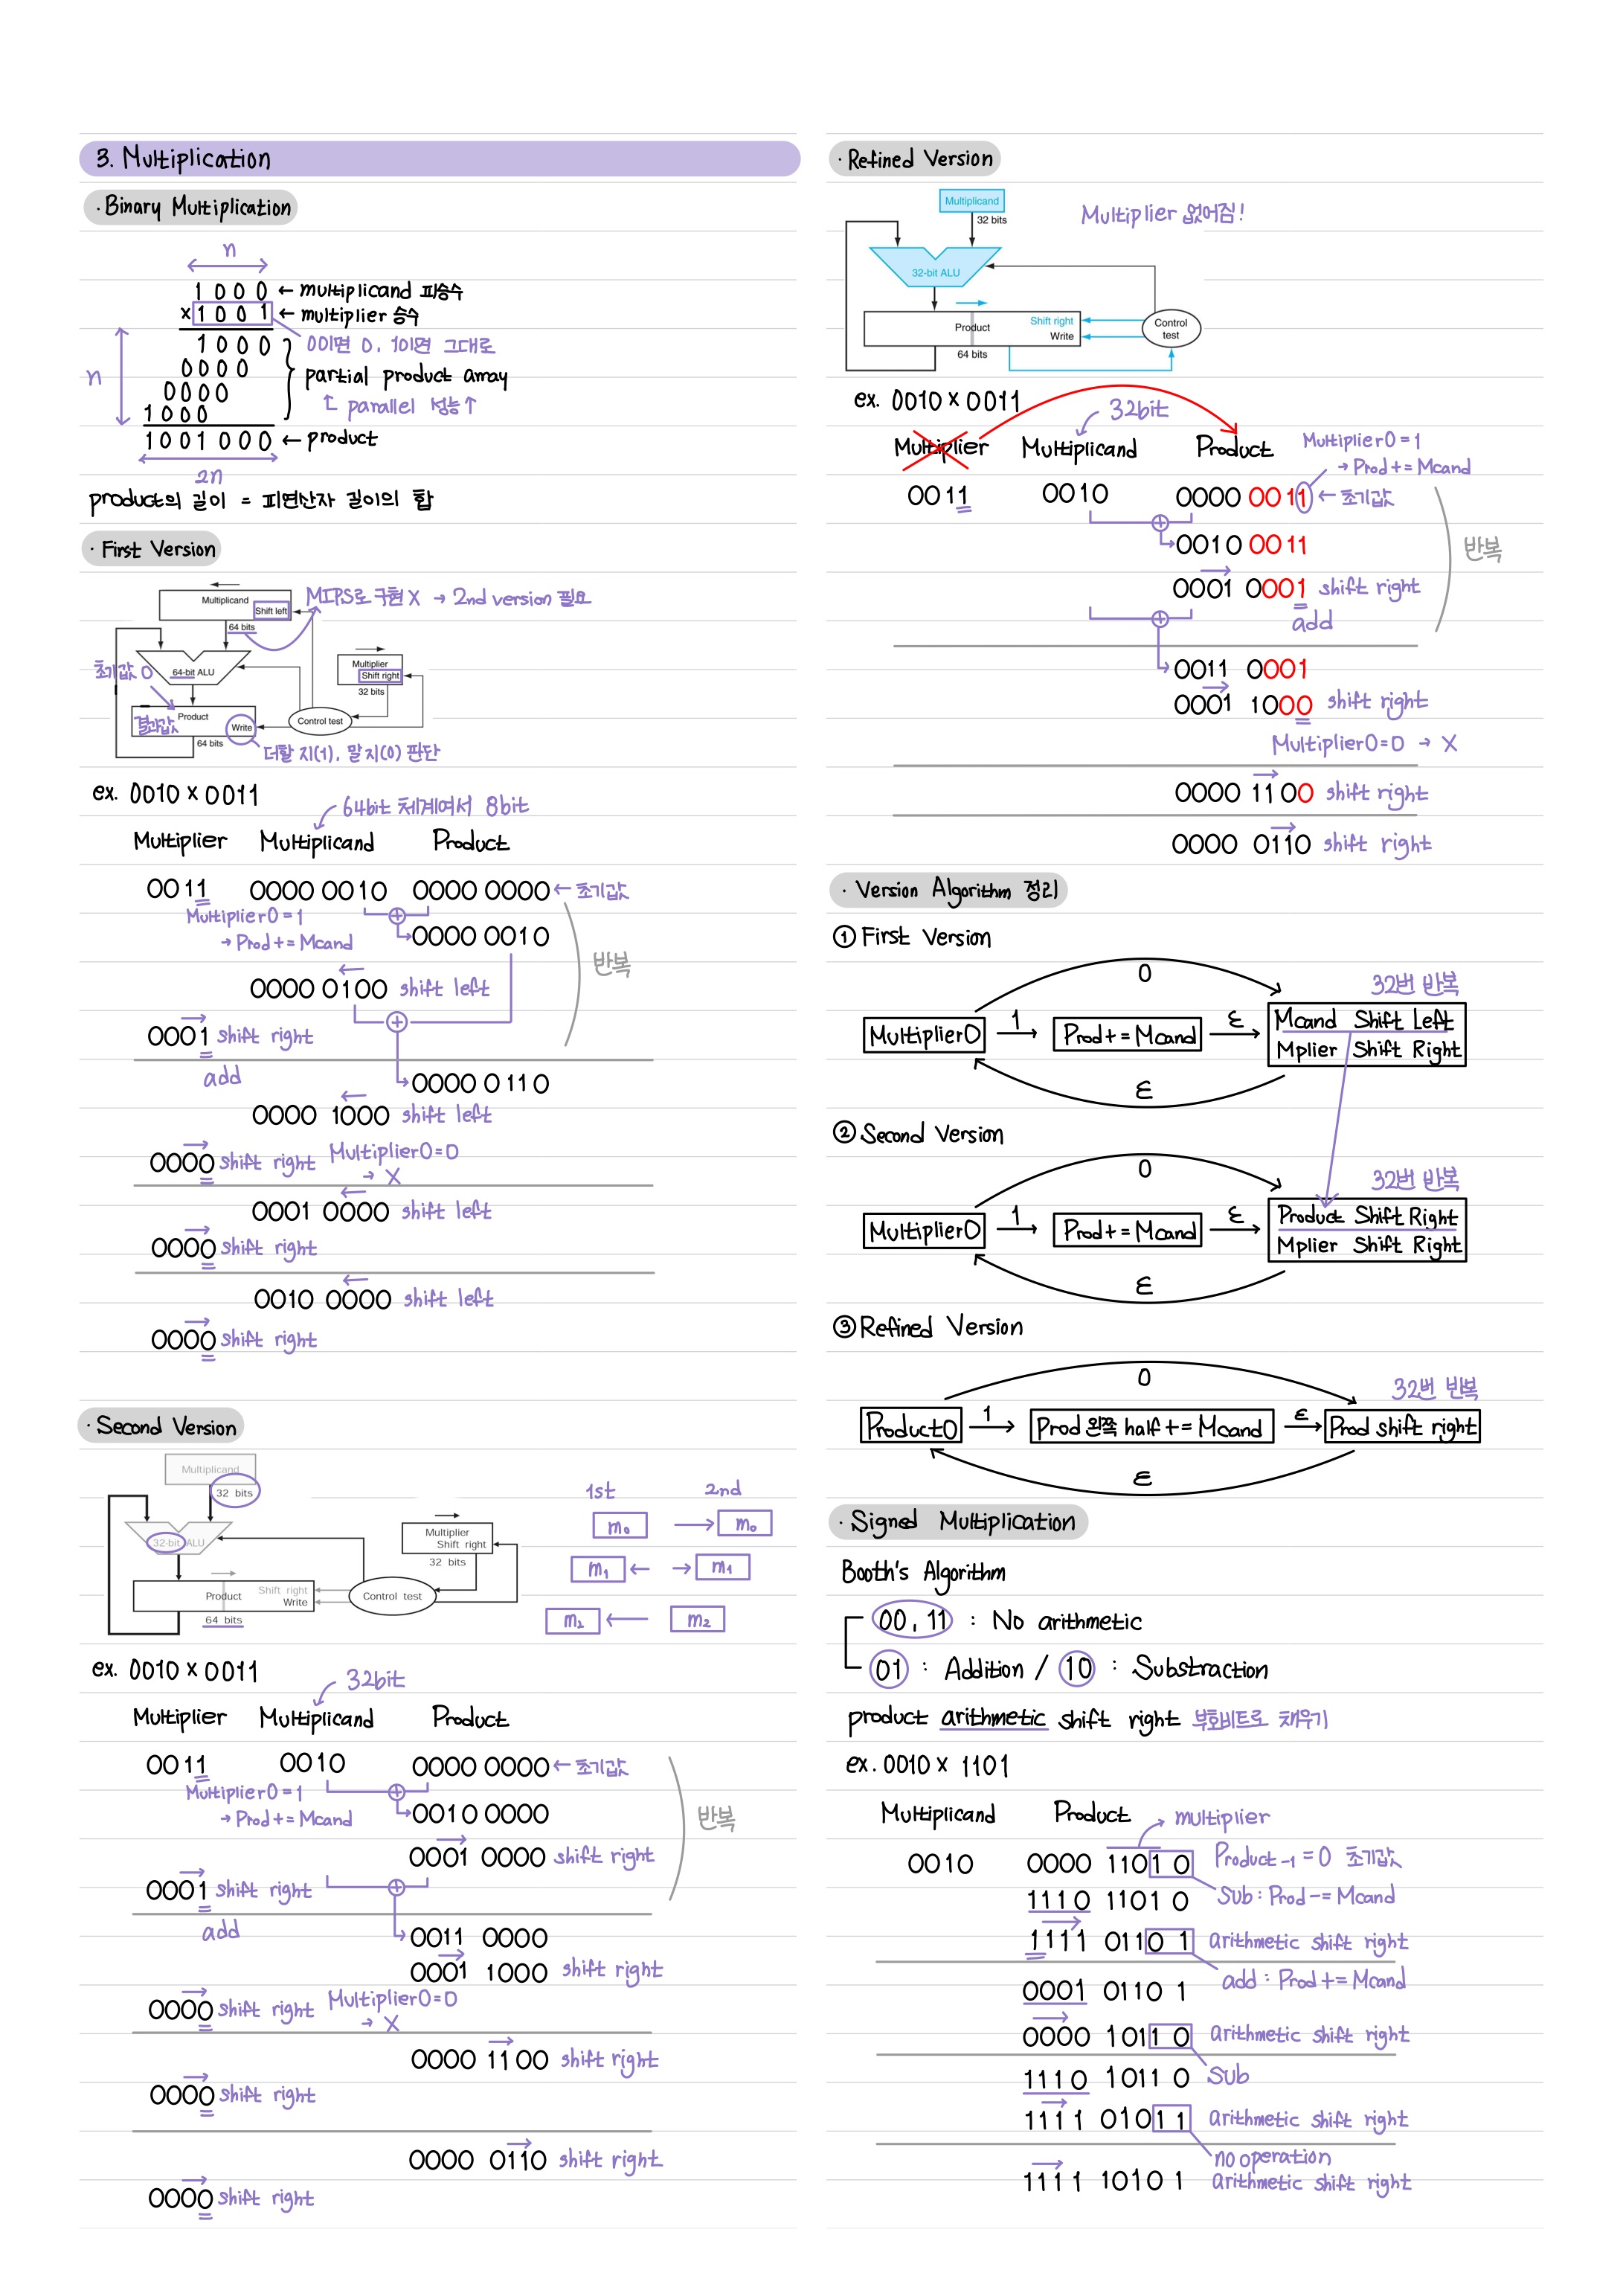 3. Multiplication
· Binary Multiplication
n
1 0 0 0 ← multiplicand 피승수
x 1 0 0 1 ← multiplier 승수
1 0 0 0 0이면 0, 1이면 그대로
0 0 0 0
n partial product array
0 0 0 0
1 0 0 0 ↳ parallel 성능↑
1 0 0 1 0 0 0 ← product
2n
product의 길이 = 피연산자 길이의 합
· First Version
Multiplicand
Shift left
MIPS로 구현 X → 2nd version 필요
64 bits
초기값 0
64-bit ALU
Multiplier
Shift right
32 bits
Product
결과값
Write
Control test
64 bits
더할 지(1), 말 지(0) 판단
ex. 0010 x 0011
64bit 체계여서 8bit
Multiplier Multiplicand Product
0011 0000 0010 0000 0000 ← 초기값
Multiplier0 = 1
→ Prod += Mcand
0000 0010
반복
0000 0100 shift left
0001 shift right
add
0000 0110
0000 1000 shift left
0000 shift right Multiplier0=0
→ X
0001 0000 shift left
0000 shift right
0010 0000 shift left
0000 shift right
· Second Version
Multiplicand
32 bits
32-bit ALU
Multiplier
Shift right
32 bits
Product
Shift right
Write
Control test
64 bits
1st 2nd
m₀ → m₀
m₁ ← → m₁
m₂ ← m₂
ex. 0010 x 0011
32bit
Multiplier Multiplicand Product
0011 0010 0000 0000 ← 초기값
Multiplier0 = 1
→ Prod += Mcand
0010 0000
반복
0001 0000 shift right
0001 shift right
add
0011 0000
0001 1000 shift right
0000 shift right Multiplier0=0
→ X
0000 1100 shift right
0000 shift right
0000 0110 shift right
0000 shift right
· Refined Version
Multiplicand
32 bits
Multiplier 없어짐!
32-bit ALU
Product
Shift right
Write
Control test
64 bits
ex. 0010 x 0011
32bit
Multiplier Multiplicand Product
Multiplier0 = 1
→ Prod += Mcand
0011 0010 0000 0011 ← 초기값
0010 0011
반복
0001 0001 shift right
add
0011 0001
0001 1000 shift right
Multiplier0=0 → X
0000 1100 shift right
0000 0110 shift right
· Version Algorithm 정리
① First Version
0
32번 반복
Multiplier0 1 → Prod += Mcand ε → Mcand Shift Left
Mplier Shift Right
ε
② Second Version
0
32번 반복
Multiplier0 1 → Prod += Mcand ε → Product Shift Right
Mplier Shift Right
ε
③ Refined Version
0
32번 반복
Product0 1 → Prod 왼쪽 half += Mcand ε → Prod shift right
ε
· Signed Multiplication
Booth's Algorithm
00, 11 : No arithmetic
01 : Addition / 10 : Substraction
product arithmetic shift right 부호비트로 채우기
ex. 0010 x 1101
Multiplicand Product
multiplier
0010 0000 1101 0 Product₋₁ = 0 초기값
Sub : Prod -= Mcand
1110 1101 0
1111 0110 1 arithmetic shift right
add : Prod += Mcand
0001 0110 1
0000 1011 0 arithmetic shift right
1110 1011 0 Sub
1111 0101 1 arithmetic shift right
no operation
1111 1010 1 arithmetic shift right